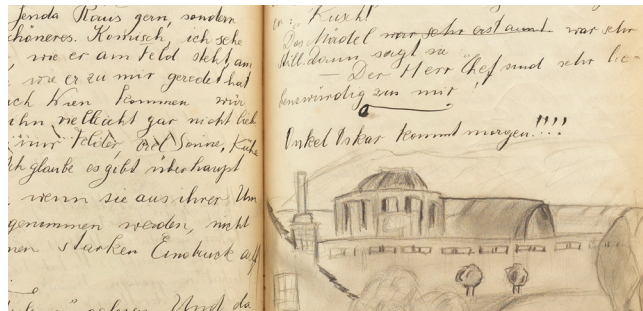 Jenda Kraus gern, sondern
schöneres. Komisch, ich sehe
, wie er am Feld steht, am
, wie er zu mir geredet hat
ich Wien kommen wür
ihn vielleicht gar nicht lieb
Felder, Sonne, Kühe
Ich glaube es gibt überhaupt
, wenn sie aus ihrer Um
genommen werden, nicht
nen starken Eindruck auf
gelesen. Und da
Kusch!
Das Mädel war sehr erstaunt. war sehr
still. Dann sagt sie
– Der Herr Chef sind sehr lie-
benswürdig zu mir!
Onkel Oskar kommt morgen!!!!